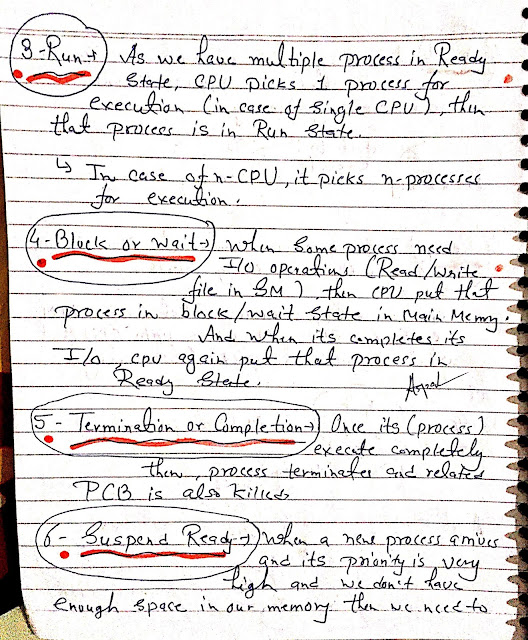 3-Run→ As we have multiple process in Ready
State, CPU picks 1 process for
execution (in case of Single CPU), then
that process is in Run State.
↳ In case of n-CPU, it picks n-processes
for execution.
4-Block or wait→ When Some process need
I/O operations (Read/write
file in SM) then CPU put that
process in block/wait State in Main Memry.
And when its completes its
I/o, cpu again put that process in
Ready State.
5- Termination or Completion→ Once its (process)
execute completely
then, process terminates and related
PCB is also killed.
6- Suspend Ready→ When a new process arrives
and its priority is very
high and we don't have
enough space in our memory then we need to